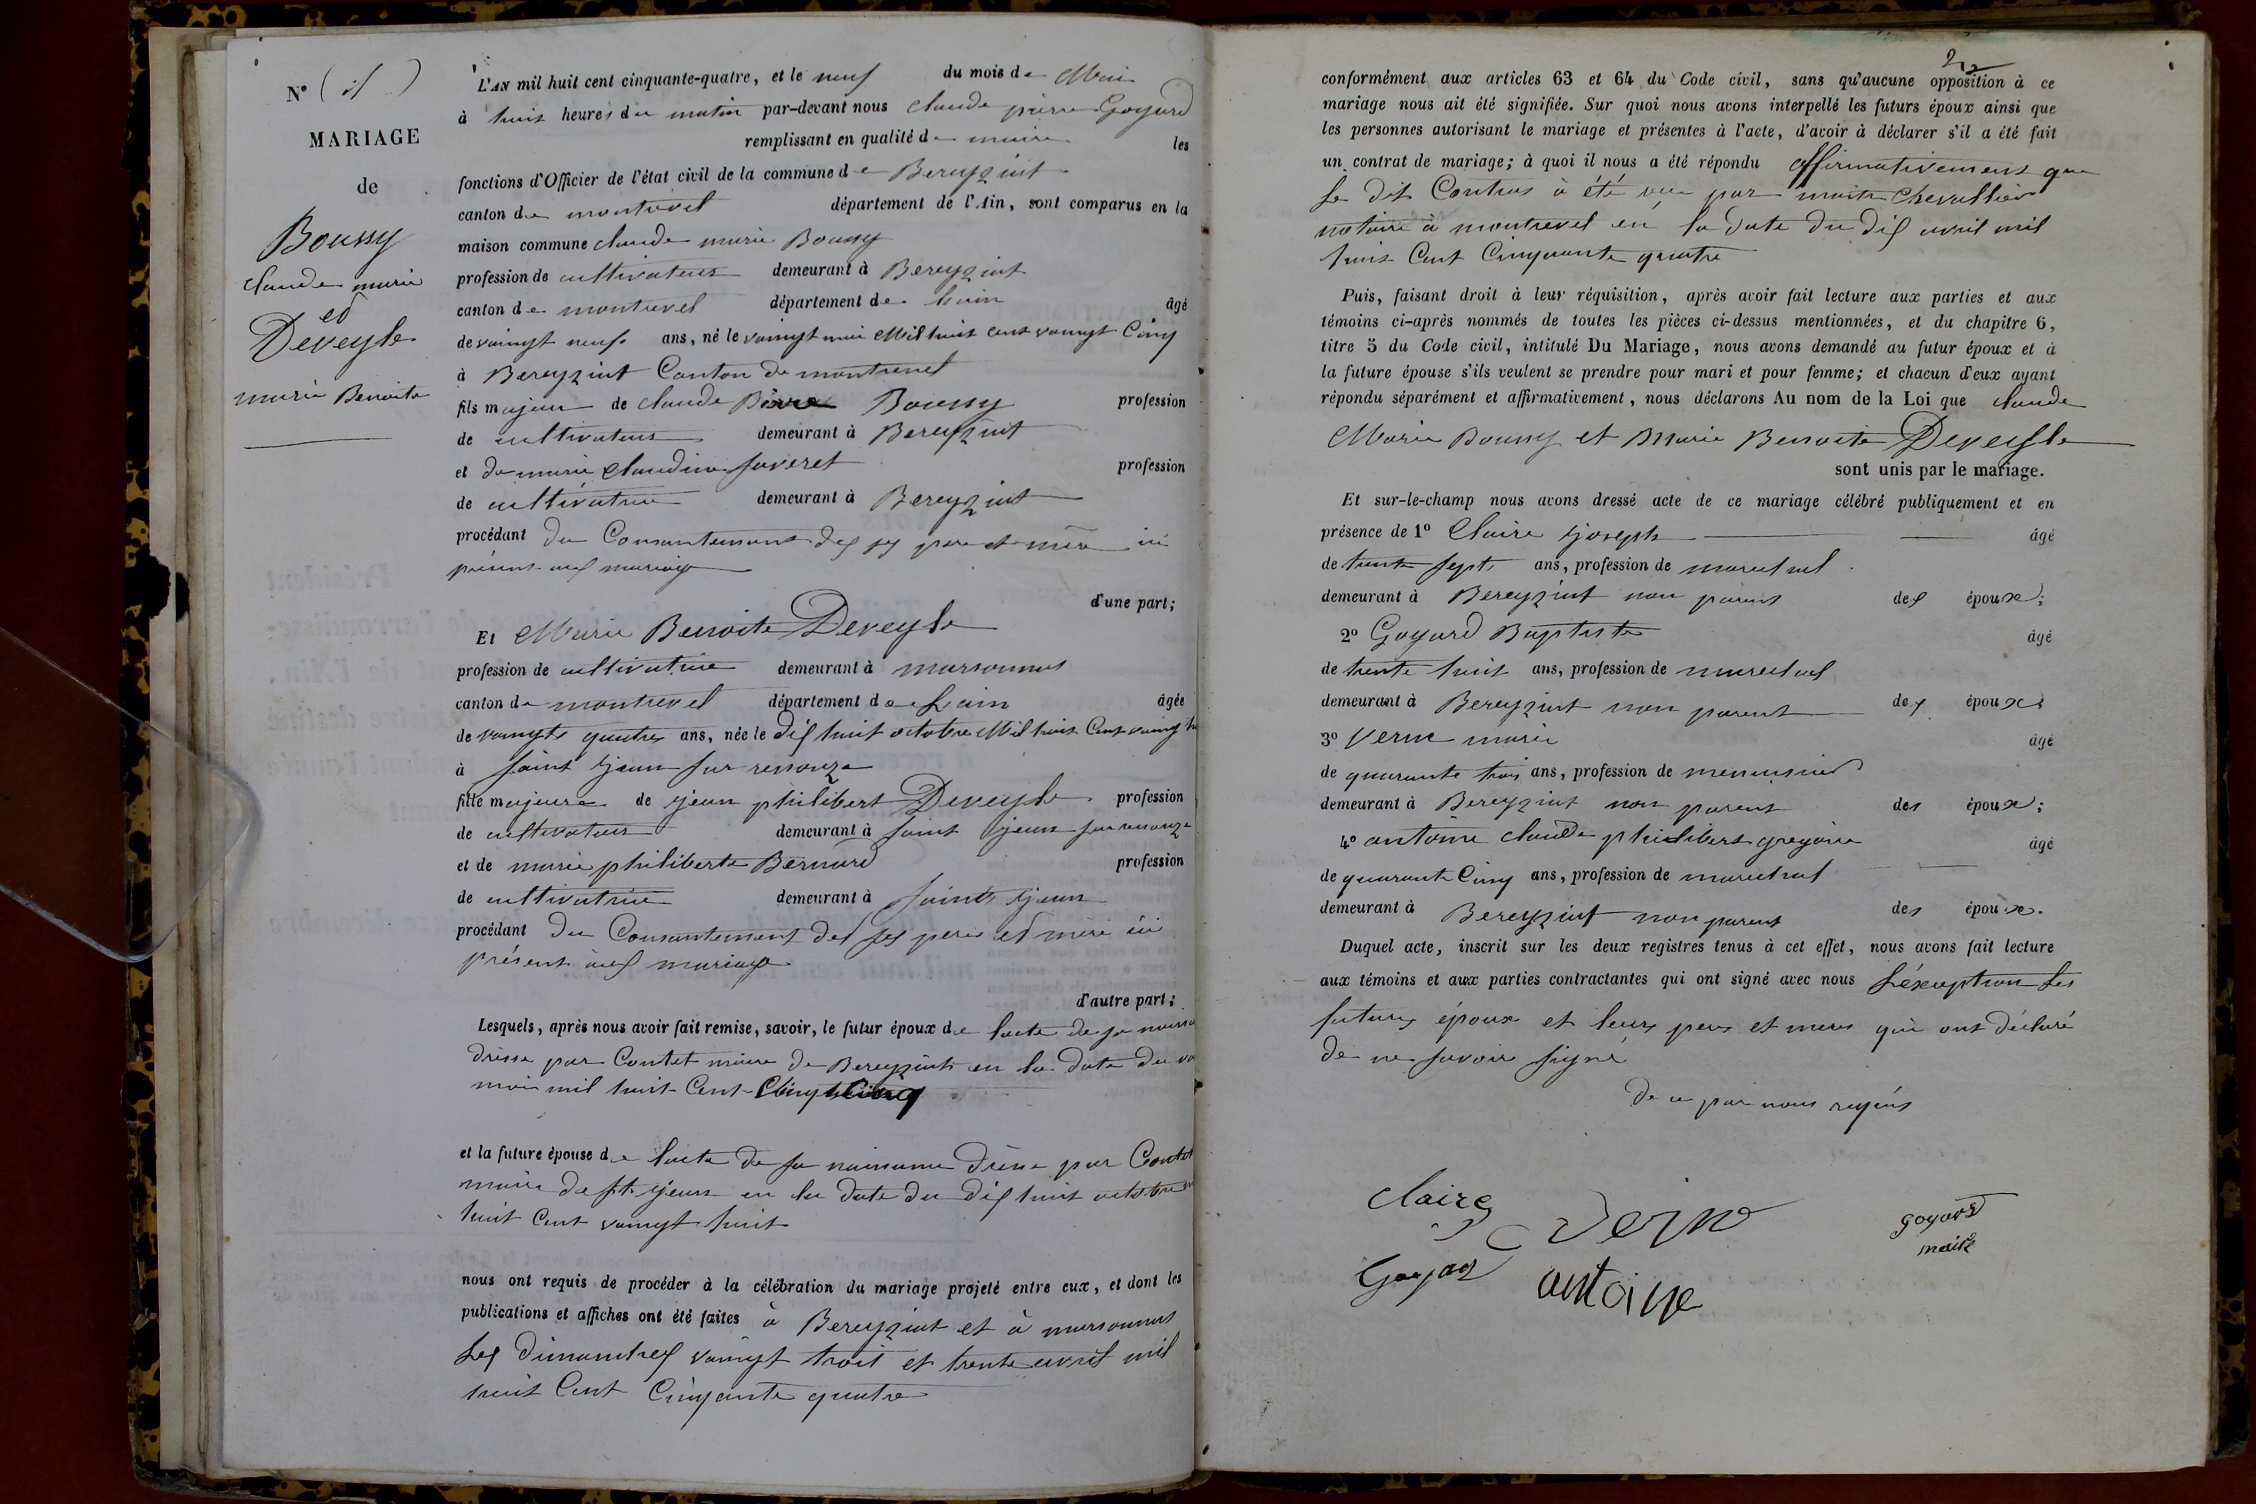 N°
MARIAGE
de
Boussy
claude marie
et
Deveyle
marie Benoite
L'AN mil huit cent cinquante-quatre, et le neuf du mois de Mai
à huit heures du matin par-devant nous claude pierre Goyard
remplissant en qualité de maire les
fonctions d'Officier de l'état civil de la commune de Bereyziat
canton de montrevel département de l'Ain, sont comparus en la
maison commune claude marie Boussy
profession de cultivateur demeurant à Bereyziat
canton de montrevel département de lain âgé
de vaingt neuf ans, né le vaingt mai Mil huit cent vaingt Cinq
à Bereyziat Canton de montrevel
fils majeur de claude Boussy profession
de cultivateur demeurant à Bereyziat
et de marie claudine faveret profession
de cultivatrice demeurant à Bereyziat
procédant du Consantement des ses pere et mère ici
présent aux mariage
d'une part;
Et Marie Benoite Deveyle
profession de cultivatrice demeurant à marsonnas
canton de montrevel département de Lain âgée
de vaingts quatres ans, née le dix huit octobre Mil huit Cent vaingt
à saint jean sur ressouze
fille majeure de jean philibert Deveyle profession
de cultivateur demeurant à saint jean sur ressouze
et de marie philiberte Bernard profession
de cultivatrice demeurant à saint jean
procédant du Consantement des ses pere et mère ici
présent aux mariage
d'autre part;
Lesquels, après nous avoir fait remise, savoir, le futur époux de lacte de sa
drésse par Contet maire de Bereyziat en la date du
mai mil huit Cent
et la future épouse de lacte de sa naissance drésse par Contet
maire de st jean en la date du dix huit octobre
huit Cent vaingt huit
nous ont requis de procéder à la célébration du mariage projeté entre eux, et dont les
publications et affiches ont été faites à Bereyziat et à marsonnas
Les dimanches vaingt trois et trente avril mil
huit Cent Cinqante quatre
conformément aux articles 63 et 64 du Code civil, sans qu'aucune opposition à ce
mariage nous ait été signifiée. Sur quoi nous avons interpellé les futurs époux ainsi que
les personnes autorisant le mariage et présentes à l'acte, d'avoir à déclarer s'il a été fait
un contrat de mariage; à quoi il nous a été répondu affirmativement que
Le dit Contras à été par maitre chevallier
notaire à montrevel en la date du dix avril mil
huit Cent Cinquante quatre
Puis, faisant droit à leur réquisition, après avoir fait lecture aux parties et aux
témoins ci-après nommés de toutes les pièces ci-dessus mentionnées, et du chapitre 6,
titre 5 du Code civil, intitulé Du Mariage, nous avons demandé au futur époux et à
la future épouse s'ils veulent se prendre pour mari et pour femme; et chacun d'eux ayant
répondu séparément et affirmativement, nous déclarons Au nom de la Loi que claude
Marie Boussy et Marie Benoite Deveyle
sont unis par le mariage.
Et sur-le-champ nous avons dressé acte de ce mariage célébré publiquement et en
présence de 1° Claire joseph âgé
de trente sept ans, profession de marechal
demeurant à Bereyziat non parent des époux;
2° Goyard Baptiste âgé
de trente huit ans, profession de marechal
demeurant à Bereyziat non parent des époux;
3° Verne marie âgé
de quarante trois ans, profession de menuisier
demeurant à Bereyziat non parent des époux;
4° antoine claude philibert gregoire âgé
de quarante Cinq ans, profession de marechal
demeurant à Bereyziat non parent des époux.
Duquel acte, inscrit sur les deux registres tenus à cet effet, nous avons fait lecture
aux témoins et aux parties contractantes qui ont signé avec nous Léxception les
futurs époux et leurs pere et mere qui ont déclaré
de ne savoir signé
de ce par nous requis
Claire
Goyard
antoine
goyard
maire